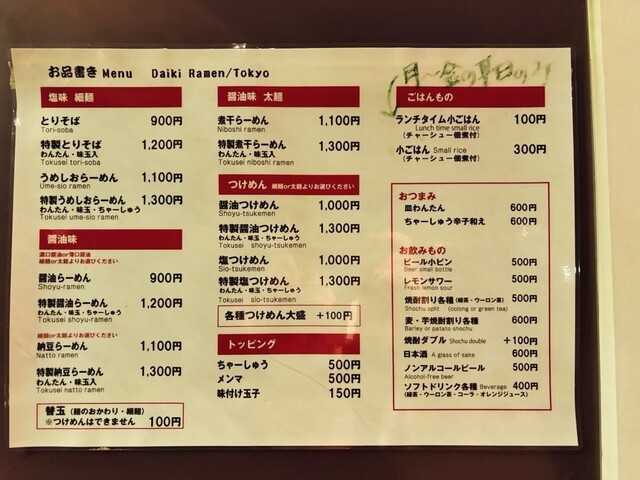 お品書き Menu Daiki Ramen/Tokyo
塩味 細麺
とりそば 900円
Tori-soba
特製とりそば 1,200円
わんたん・味玉入
Tokusei tori-soba
うめしおらーめん 1,100円
Ume-sio ramen
特製うめしおらーめん 1,300円
わんたん・味玉・ちゃーしゅう
Tokusei ume-sio ramen
醤油味
濃口醤油or薄口醤油
細麺or太麺よりお選びください
醤油らーめん 900円
Shoyu-ramen
特製醤油らーめん 1,200円
わんたん・味玉・ちゃーしゅう
Tokusei shoyu-ramen
細麺or太麺よりお選びください
納豆らーめん 1,100円
Natto ramen
特製納豆らーめん 1,300円
わんたん・味玉入
Tokusei natto ramen
替玉 (麺のおかわり・細麺)
※つけめんはできません 100円
醤油味 太麺
煮干らーめん 1,100円
Niboshi ramen
特製煮干らーめん 1,300円
わんたん・味玉入
Tokusei niboshi ramen
つけめん 細麺or太麺よりお選びください
醤油つけめん 1,000円
Shoyu-tsukemen
特製醤油つけめん 1,300円
わんたん・味玉・ちゃーしゅう
Tokusei shoyu-tsukemen
塩つけめん 1,000円
Sio-tsukemen
特製塩つけめん 1,300円
わんたん・味玉・ちゃーしゅう
Tokusei sio-tsukemen
各種つけめん大盛 +100円
トッピング
ちゃーしゅう 500円
メンマ 500円
味付け玉子 150円
月〜金の平日のみ
ごはんもの
ランチタイム小ごはん 100円
Lunch time small rice
(チャーシュー佃煮付)
小ごはん Small rice 300円
(チャーシュー佃煮付)
おつまみ
皿わんたん 600円
ちゃーしゅう辛子和え 600円
お飲みもの
ビール小ビン 500円
Beer small bottle
レモンサワー 500円
Fresh lemon sour
焼酎割り各種 (緑茶・ウーロン茶) 500円
Shochu split (oolong or green tea)
麦・芋焼酎割り各種 600円
Barley or patato shochu
焼酎ダブル Shochu double +100円
日本酒 A glass of sake 600円
ノンアルコールビール 500円
Alcohol-free beer
ソフトドリンク各種 Beverage 400円
(緑茶・ウーロン茶・コーラ・オレンジジュース)